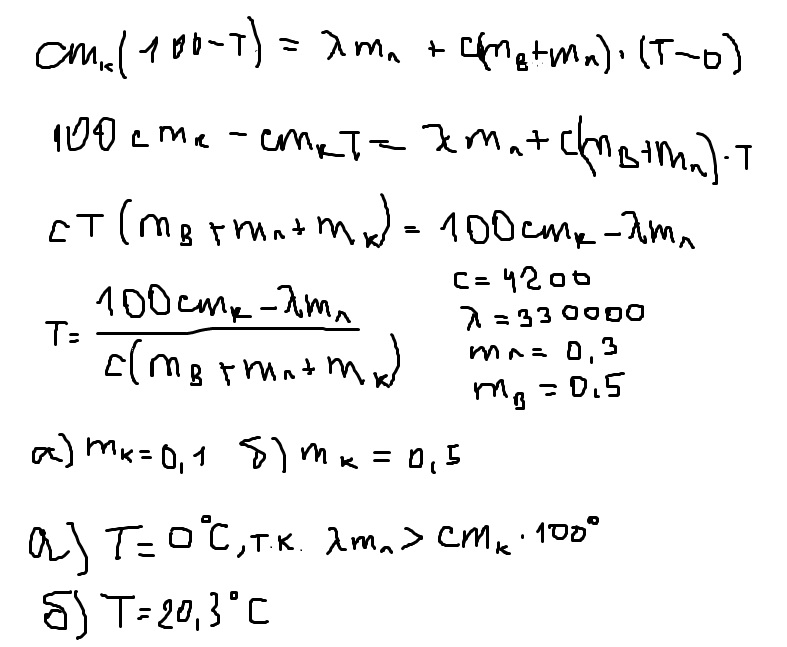 cmк(100-T) = λmл + c(mв+mл)·(T-0)
100cmк - cmкT = λmл + c(mв+mл)·T
cT(mв+mл+mк) = 100cmк-λmл
T= (100cmк-λmл)/(c(mв+mл+mк))
c=4200
λ=330000
mл=0,3
mв=0.5
а) mк=0,1 б) mк=0,5
а) T=0°C, т.к. λmл > cmк·100°
б) T=20,3°C